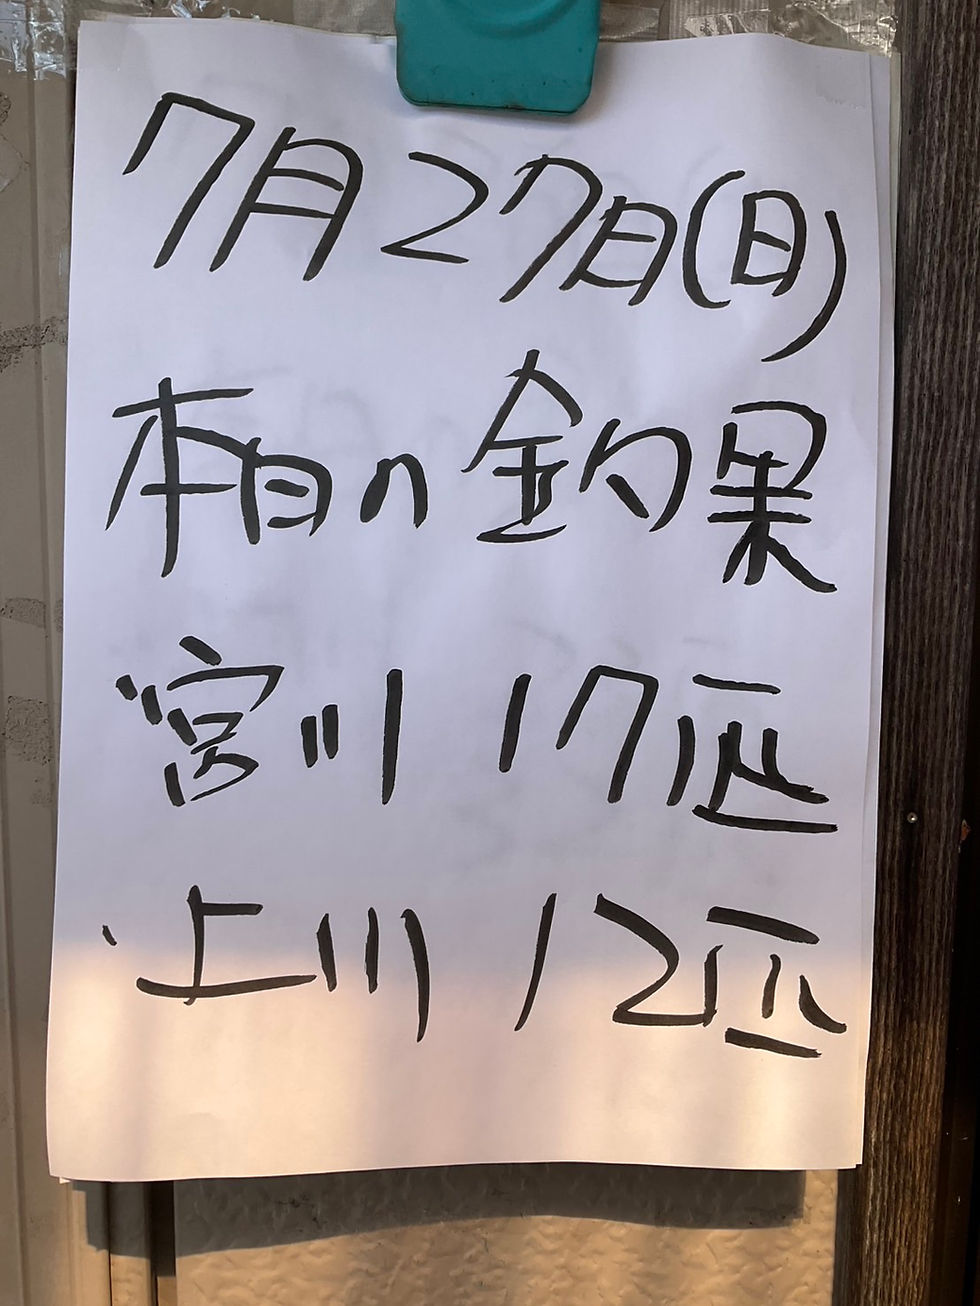 7月27日(日)
本日の釣果
・宮川 17匹
・上川 12匹